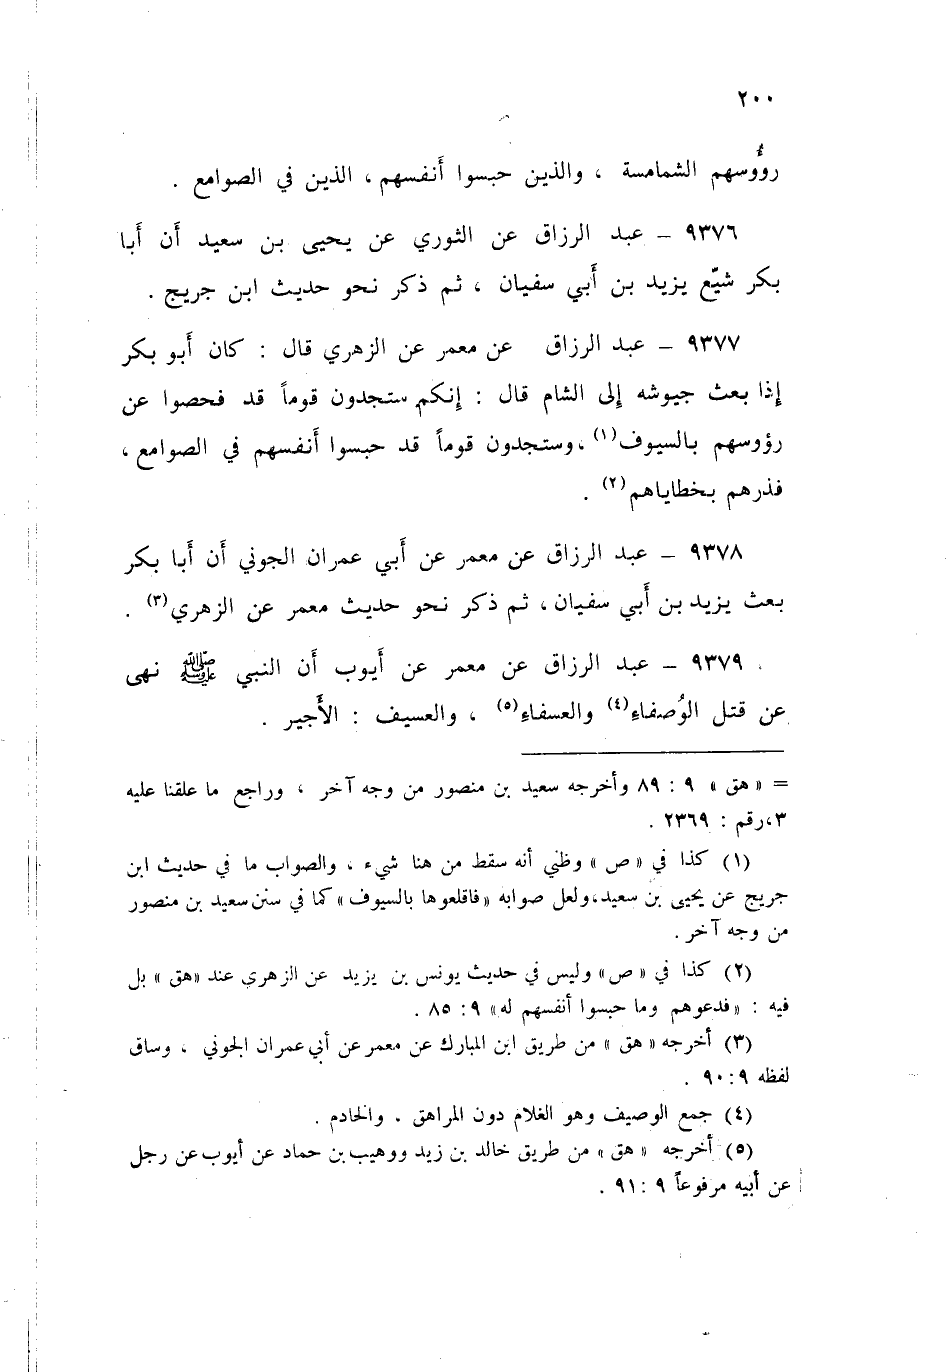 ٢٠٠
رؤُوسهم الشمامسة ، والذين حبسوا أَنفسهم ، الذين في الصوامع .
٩٣٧٦ – عبد الرزاق عن الثوري عن يحيى بن سعيد أَن أَبا
بكر شيّع يزيد بن أَبي سفيان ، ثم ذكر نحو حديث ابن جريج .
٩٣٧٧ – عبد الرزاق عن معمر عن الزهري قال : كان أَبو بكر
إِذا بعث جيوشه إِلى الشام قال : إِنكم ستجدون قوماً قد فحصوا عن
رؤوسهم بالسيوف(١) ، وستجدون قوماً قد حبسوا أَنفسهم في الصوامع ،
فذرهم بخطاياهم(٢) .
٩٣٧٨ – عبد الرزاق عن معمر عن أَبي عمران الجوني أَن أَبا بكر
بعث يزيد بن أَبي سفيان ، ثم ذكر نحو حديث معمر عن الزهري(٣) .
٩٣٧٩ – عبد الرزاق عن معمر عن أَيوب أَن النبي ﷺ نهى
عن قتل الوُصفاءِ(٤) والعسفاءِ(٥) ، والعسيف : الأَجير .
= « هق » ٩ : ٨٩ وأخرجه سعيد بن منصور من وجه آخر ، وراجع ما علقنا عليه
٣، رقم : ٢٣٦٩ .
(١) كذا في « ص » وظني أنه سقط من هنا شيء ، والصواب ما في حديث ابن
جريج عن يحيى بن سعيد، ولعل صوابه « فاقلعوها بالسيوف » كما في سنن سعيد بن منصور
من وجه آخر .
(٢) كذا في « ص » وليس في حديث يونس بن يزيد عن الزهري عند « هق » بل
فيه : « فدعوهم وما حبسوا أنفسهم له » ٩ : ٨٥ .
(٣) أخرجه « هق » من طريق ابن المبارك عن معمر عن أبي عمران الجوني ، وساق
لفظه ٩ : ٩٠ .
(٤) جمع الوصيف وهو الغلام دون المراهق . والخادم .
(٥) أخرجه « هق » من طريق خالد بن زيد ووهيب بن حماد عن أيوب عن رجل
عن أبيه مرفوعاً ٩ : ٩١ .